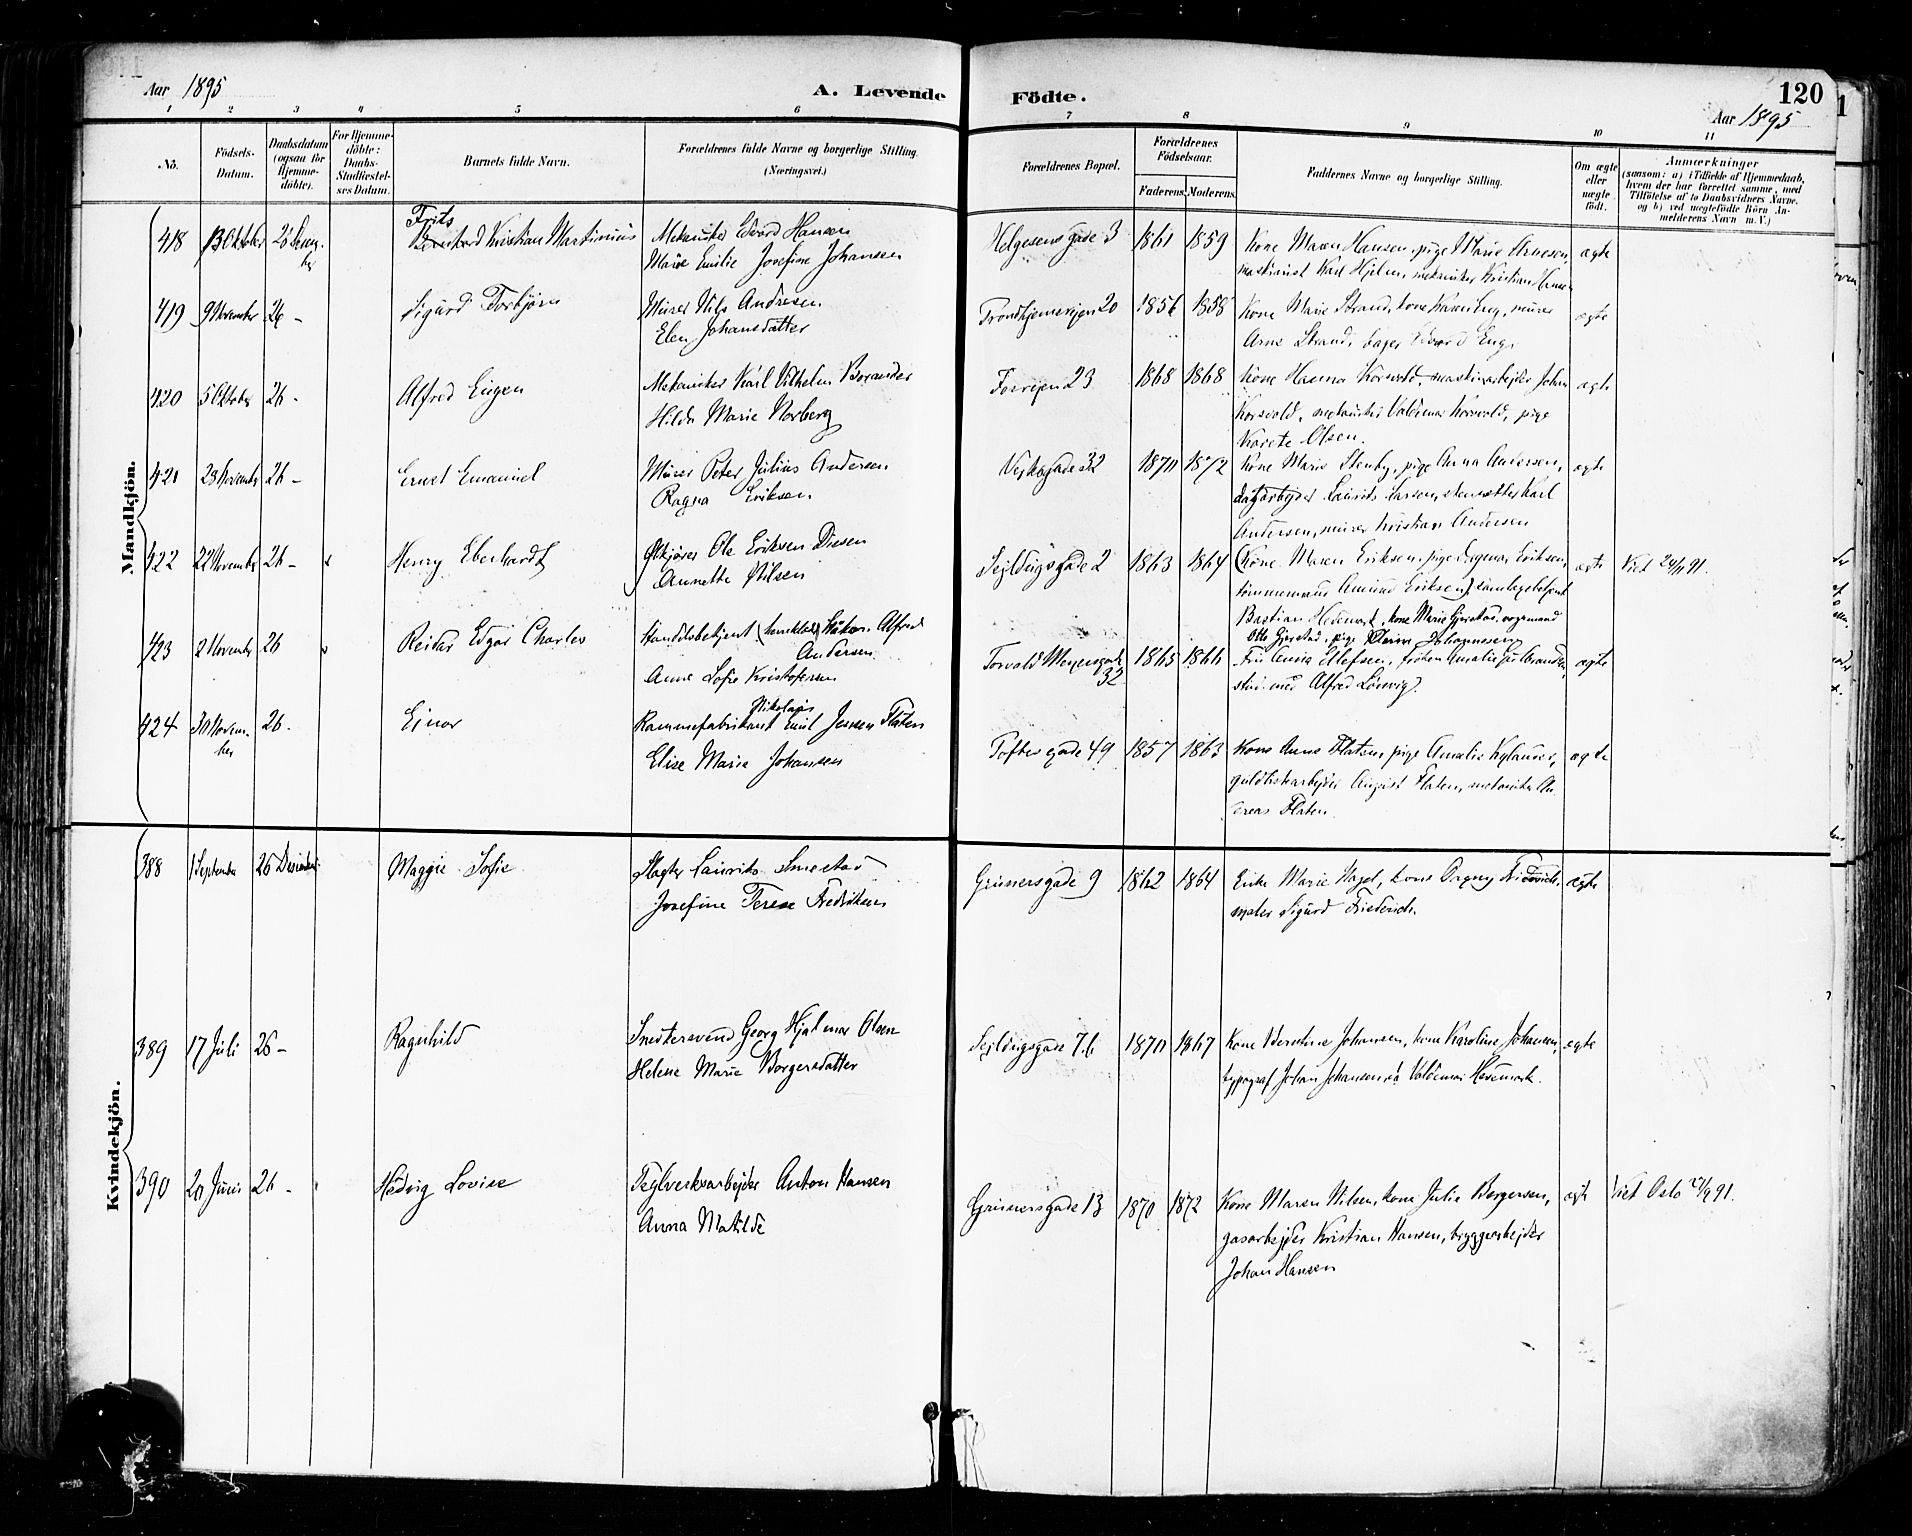 Aar 1895
A. Levende Födte.
120
Aar 1895
1 2 3 4 5 6 7 8 9 10 11
No.
Födsels-Datum.
Daabsdatum (ogsaa for Hjemmedöbte).
For Hjemmedöbte: Daabs-Stadfæstelses Datum.
Barnets fulde Navn.
Forældrenes fulde Navne og borgerlige Stilling.
(Næringsvei.)
Forældrenes Bopæl.
Forældrenes Födselsaar.
Faderens. Moderens.
Faddernes Navne og borgerlige Stilling.
Om ægte eller uægte födt.
Anmærkninger
(saasom: a) i Tilfælde af Hjemmedaab, hvem der har forrettet samme, med Tilföielse af to Daabsvidners Navne. og b) ved uægtefödte Börn Anmelderens Navn m. V.)
Mandkjön.
Frits
418 13 Oktober Kristian Martinius Mekaniker Edvard Hansen Helgesensgade 3 1861 1859 Kone Maren Hansen, pige Marie Arnesen, ægte
Marie Emilie Josefine Johansen maskinist Karl Hjelm, mekaniker Kristian Hansen
419 9 November 26 - Sigurd Torbjørn Murer Nils Andresen Trondhjemsvejen 20 1856 1858 Kone Marie Strand, kone Karen Eng, murer ægte
Elen Johansdatter Arne Strand, bager Edvard Eng.
420 5 Oktober 26 - Alfred Eugen Mekaniker Karl Vilhelm Fossvejen 23 1868 1868 Kone Hanna Korsvold, maskinarbejder Johan ægte
Hilda Marie Norberg Korsvold, mekaniker Valdemar Korsvold, pige
Karete Olsen.
421 23 November 26 - Ernst Emanuel Murer Peter Julius Andersen 32 1870 1872 Kone Marie Stenby, pige Anna Andersen, ægte
Ragna Eriksen dagarbejder Laurits Larsen, Karl
Andersen, murer Kristian Andersen
422 22 November 26 - Henry Eberhardt Ølkjører Ole Eriksen Diesen Sejldugsgade 2 1863 1864 Kone Maren Eriksen, pige Dagmar Eriksen, ægte Viet 24/11 91.
Annette Nilsen tømmermand Amund Eriksen
423 2 November 26 Reidar Edgar Charles Handelsbetjent Håkon Alfred Torvald Meyersgade 1865 1866 Bastian Hedemark, kone Marie Gjerstad, vognmand ægte
Andersen 32 Otto Gjerstad, pige Johannessen
Anne Sofie Kristofersen Fru Anna Ellefsen, frøken Amalie
stud. med Alfred
Nikolais
424 30 November 26 - Einar Rammefabrikant Emil Jensen Flaten Toftesgade 49 1857 1863 Kone Anne Flaten, pige Amalie ægte
Elise Marie Johansen guldlistearbejder August Flaten, mekaniker An-
dreas Flaten
Kvindekjön.
388 1 September 26 Desember Maggie Sofie Slagter Laurits Smestad Grünersgade 9 1862 1864 Enke Marie Hagel, kone Dagny Friedrich, ægte
Josefine Terese Fredriksen maler Sigurd Friedrich.
389 17 Juli 26 - Ragnhild Snedkersvend Georg Hjalmar Olsen Sejldugsgade 7.b 1870 1867 Kone Berntine Johansen, kone Karoline Johansen, ægte
Helene Marie Borgersdatter typograf Johan Johansen, Valdemar Hedemark.
390 20 Juni 26 - Hedvig Lovise Teglverksarbejder Anton Hansen Grünersgade 13 1870 1872 Kone Maren Nilsen, kone Julie Borgersen, ægte Viet Oslo 27/9 91.
Anna Matilde gasarbejder Kristian Hansen, bryggearbejder
Johan Hansen